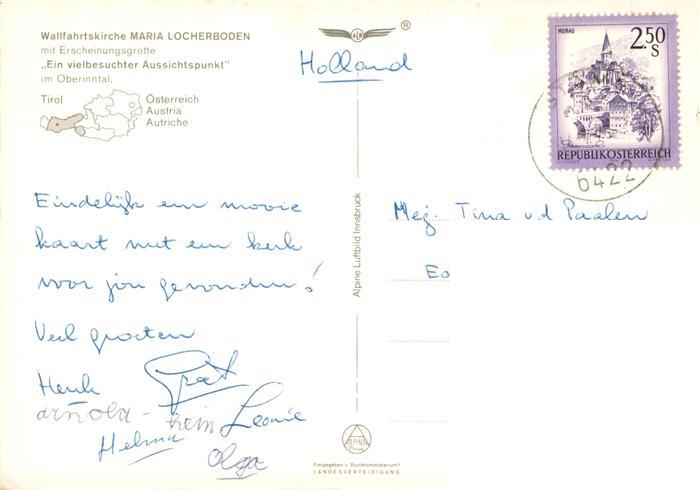 Wallfahrtskirche MARIA LOCHERBODEN
mit Erscheinungsgrotte
„Ein vielbesuchter Aussichtspunkt"
im Oberinntal.
Tirol
Österreich
Austria
Autriche
ALB
®
Holland
MURAU
2.50
S
REPUBLIK ÖSTERREICH
6422
Eindelijk een mooie
kaart met een kerk
voor jou gevonden!
Veel groeten
Henk
Arnold - Hein
Leonie
Helma
Olga
Mej. Tina vd Paalen
Eo
Alpine Luftbild Innsbruck
ALPINE
Freigegeben v. Bundesministerium f.
LANDESVERTEIDIGUNG